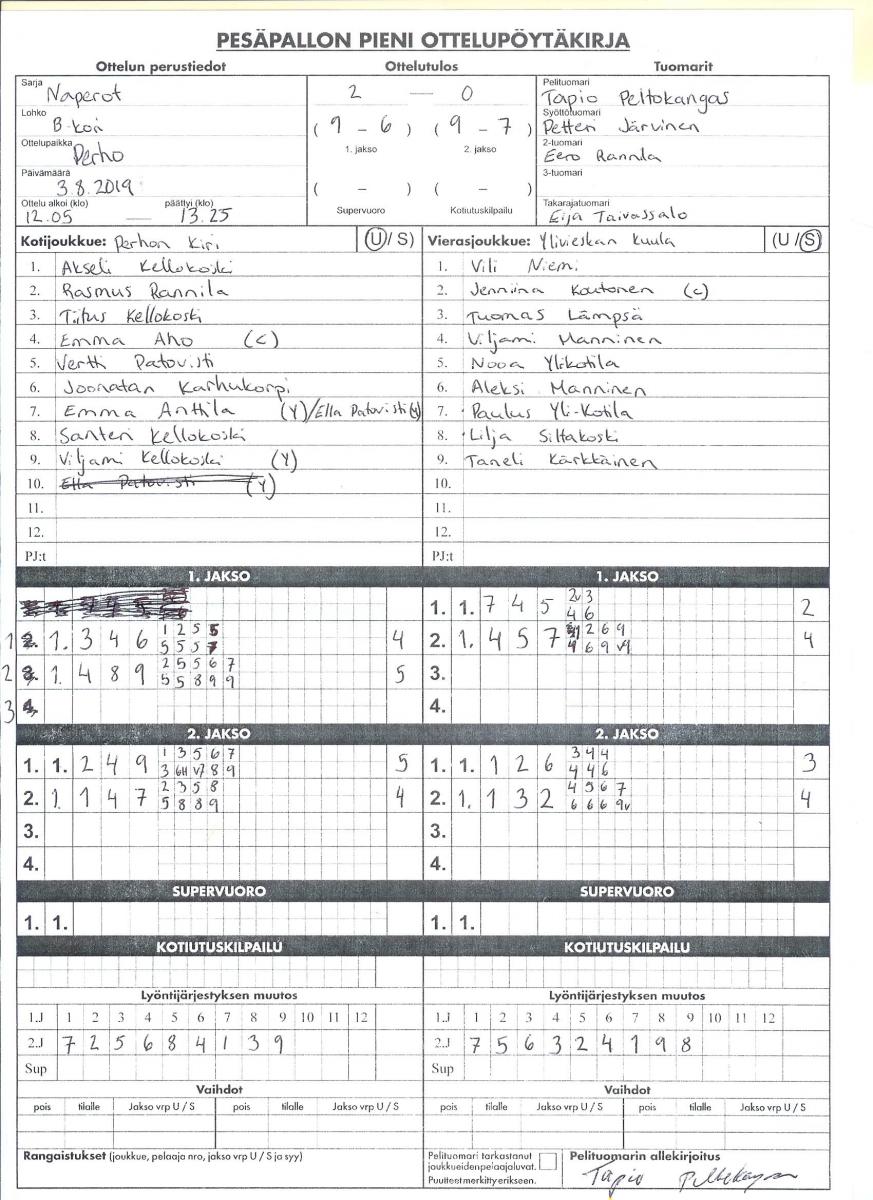 PESÄPALLON PIENI OTTELUPÖYTÄKIRJA
Ottelun perustiedot Ottelutulos Tuomarit
Sarja Naperot
Lohko B-koti
Ottelupaikka Perho
Päivämäärä 3.8.2019
Ottelu alkoi (klo) päättyi (klo)
12.05 — 13.25
2 — 0
( 9 - 6 ) ( 9 - 7 )
1. jakso 2. jakso
( - ) ( - )
Supervuoro Kotiutuskilpailu
Pelituomari
Tapio Peltokangas
Syöttötuomari
Petteri Järvinen
2-tuomari
Eero Rannila
3-tuomari
Takarajatuomari
Eija Taivassalo
Kotijoukkue: Perhon Kiri (U / S)
1. Akseli Kellokoski
2. Rasmus Rannila
3. Titus Kellokoski
4. Emma Aho (C)
5. Vertti Patovisti
6. Joonatan Karhukorpi
7. Emma Anttila (Y)/Ella Patovisti (Y)
8. Santeri Kellokoski
9. Viljami Kellokoski (Y)
10. Ella Patovisti (Y)
11.
12.
PJ:t
Vierasjoukkue: Ylivieskan Kuula (U / S)
1. Vili Niemi
2. Jenniina Koutonen (C)
3. Tuomas Lämpsä
4. Viljami Manninen
5. Nooa Ylikotila
6. Aleksi Manninen
7. Paulus Yli-Kotila
8. Lilja Siltakoski
9. Taneli Kärkkäinen
10.
11.
12.
PJ:t
1. JAKSO
1 1. 3 4 6 1 2 5 5 4
5 5 5 7
2 1. 4 8 9 2 5 5 6 7 5
5 5 8 9 9
3
2. JAKSO
1. 1. 2 4 9 1 3 5 6 7 5
3 6H V7 8 9
2. 1. 1 4 7 2 3 5 8 4
5 8 8 9
3.
4.
SUPERVUORO
1. 1.
KOTIUTUSKILPAILU
1. JAKSO
1. 1. 7 4 5 2v 3 2
4 6
2. 1. 4 5 7 2 6 9 4
4 6 9 v9
3.
4.
2. JAKSO
1. 1. 1 2 6 3 4 4 3
4 4 6
2. 1. 1 3 2 4 5 6 7 4
6 6 6 9v
3.
4.
SUPERVUORO
1. 1.
KOTIUTUSKILPAILU
Lyöntijärjestyksen muutos
1.J 1 2 3 4 5 6 7 8 9 10 11 12
2.J 7 2 5 6 8 4 1 3 9
Sup
Vaihdot
pois tilalle Jakso vrp U / S pois tilalle Jakso vrp U / S
Lyöntijärjestyksen muutos
1.J 1 2 3 4 5 6 7 8 9 10 11 12
2.J 7 5 6 3 2 4 1 9 8
Sup
Vaihdot
pois tilalle Jakso vrp U / S pois tilalle Jakso vrp U / S
Rangaistukset (joukkue, pelaaja nro, jakso vrp U / S ja syy)
Pelituomari tarkastanut
joukkueidenpelaajaluvat.
Puutteetmerkittyerikseen.
Pelituomarin allekirjoitus
Tapio Peltokangas